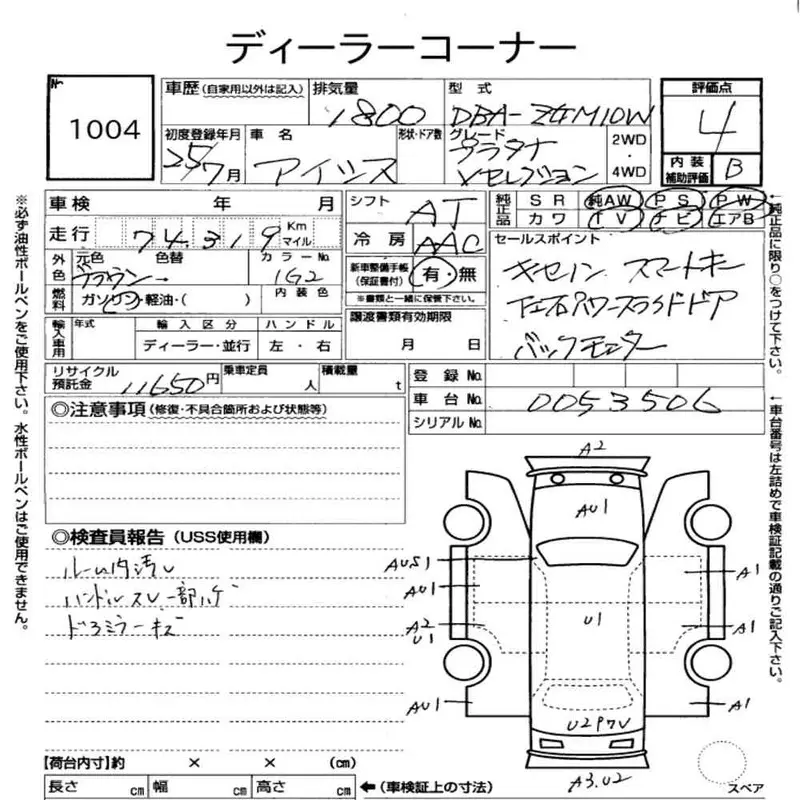 ディーラーコーナー
№ 1004
車歴 (自家用以外は記入)
排気量 1800
型式 DBA-ZGM10W
評価点 4
初度登録年月 25/7月
車名 アイシス
形状・ドア数
グレード プラタナ
Vセレクション
2WD・4WD
内装補助評価 B
車検 年 月
シフト AT
純正品 SR 純AW PS PW
カワ TV ナビ エアB
走行 74,319 Km マイル
冷房 AAC
セールスポイント
キセノン スマートキー
左右パワースライドドア
バックモニター
外色 元色 ブラウン 色替
カラーNo. 1G2
新車整備手帳(保証書付) 有・無
※書類と一緒に保管下さい。
燃料 ガソリン・軽油・( )
内装色
輸入車用 年式 輸入区分 ハンドル
ディーラー・並行 左・右
譲渡書類有効期限
月 日
リサイクル預託金 11650円
乗車定員 人
積載量 t
登録 No.
車台 No. 0053506
シリアル No.
◎注意事項 (修復・不具合箇所および状態等)
◎検査員報告 (USS使用欄)
ルーム内汚レ
ハンドルスレ一部ハゲ
ドアミラーキズ
A2
AU1
AUS1
AU1
A1
A2
U1
U1
A1
AU1
A1
U2PワV
A3.U2
スペア
【荷台内寸】約 × × (cm)
長さ cm 幅 cm 高さ cm ←(車検証上の寸法)
※必ず油性ボールペンをご使用下さい。水性ボールペンはご使用できません。
←純正品に限り○をつけて下さい。
←車台番号は左詰めで車検証記載の通りご記入下さい。